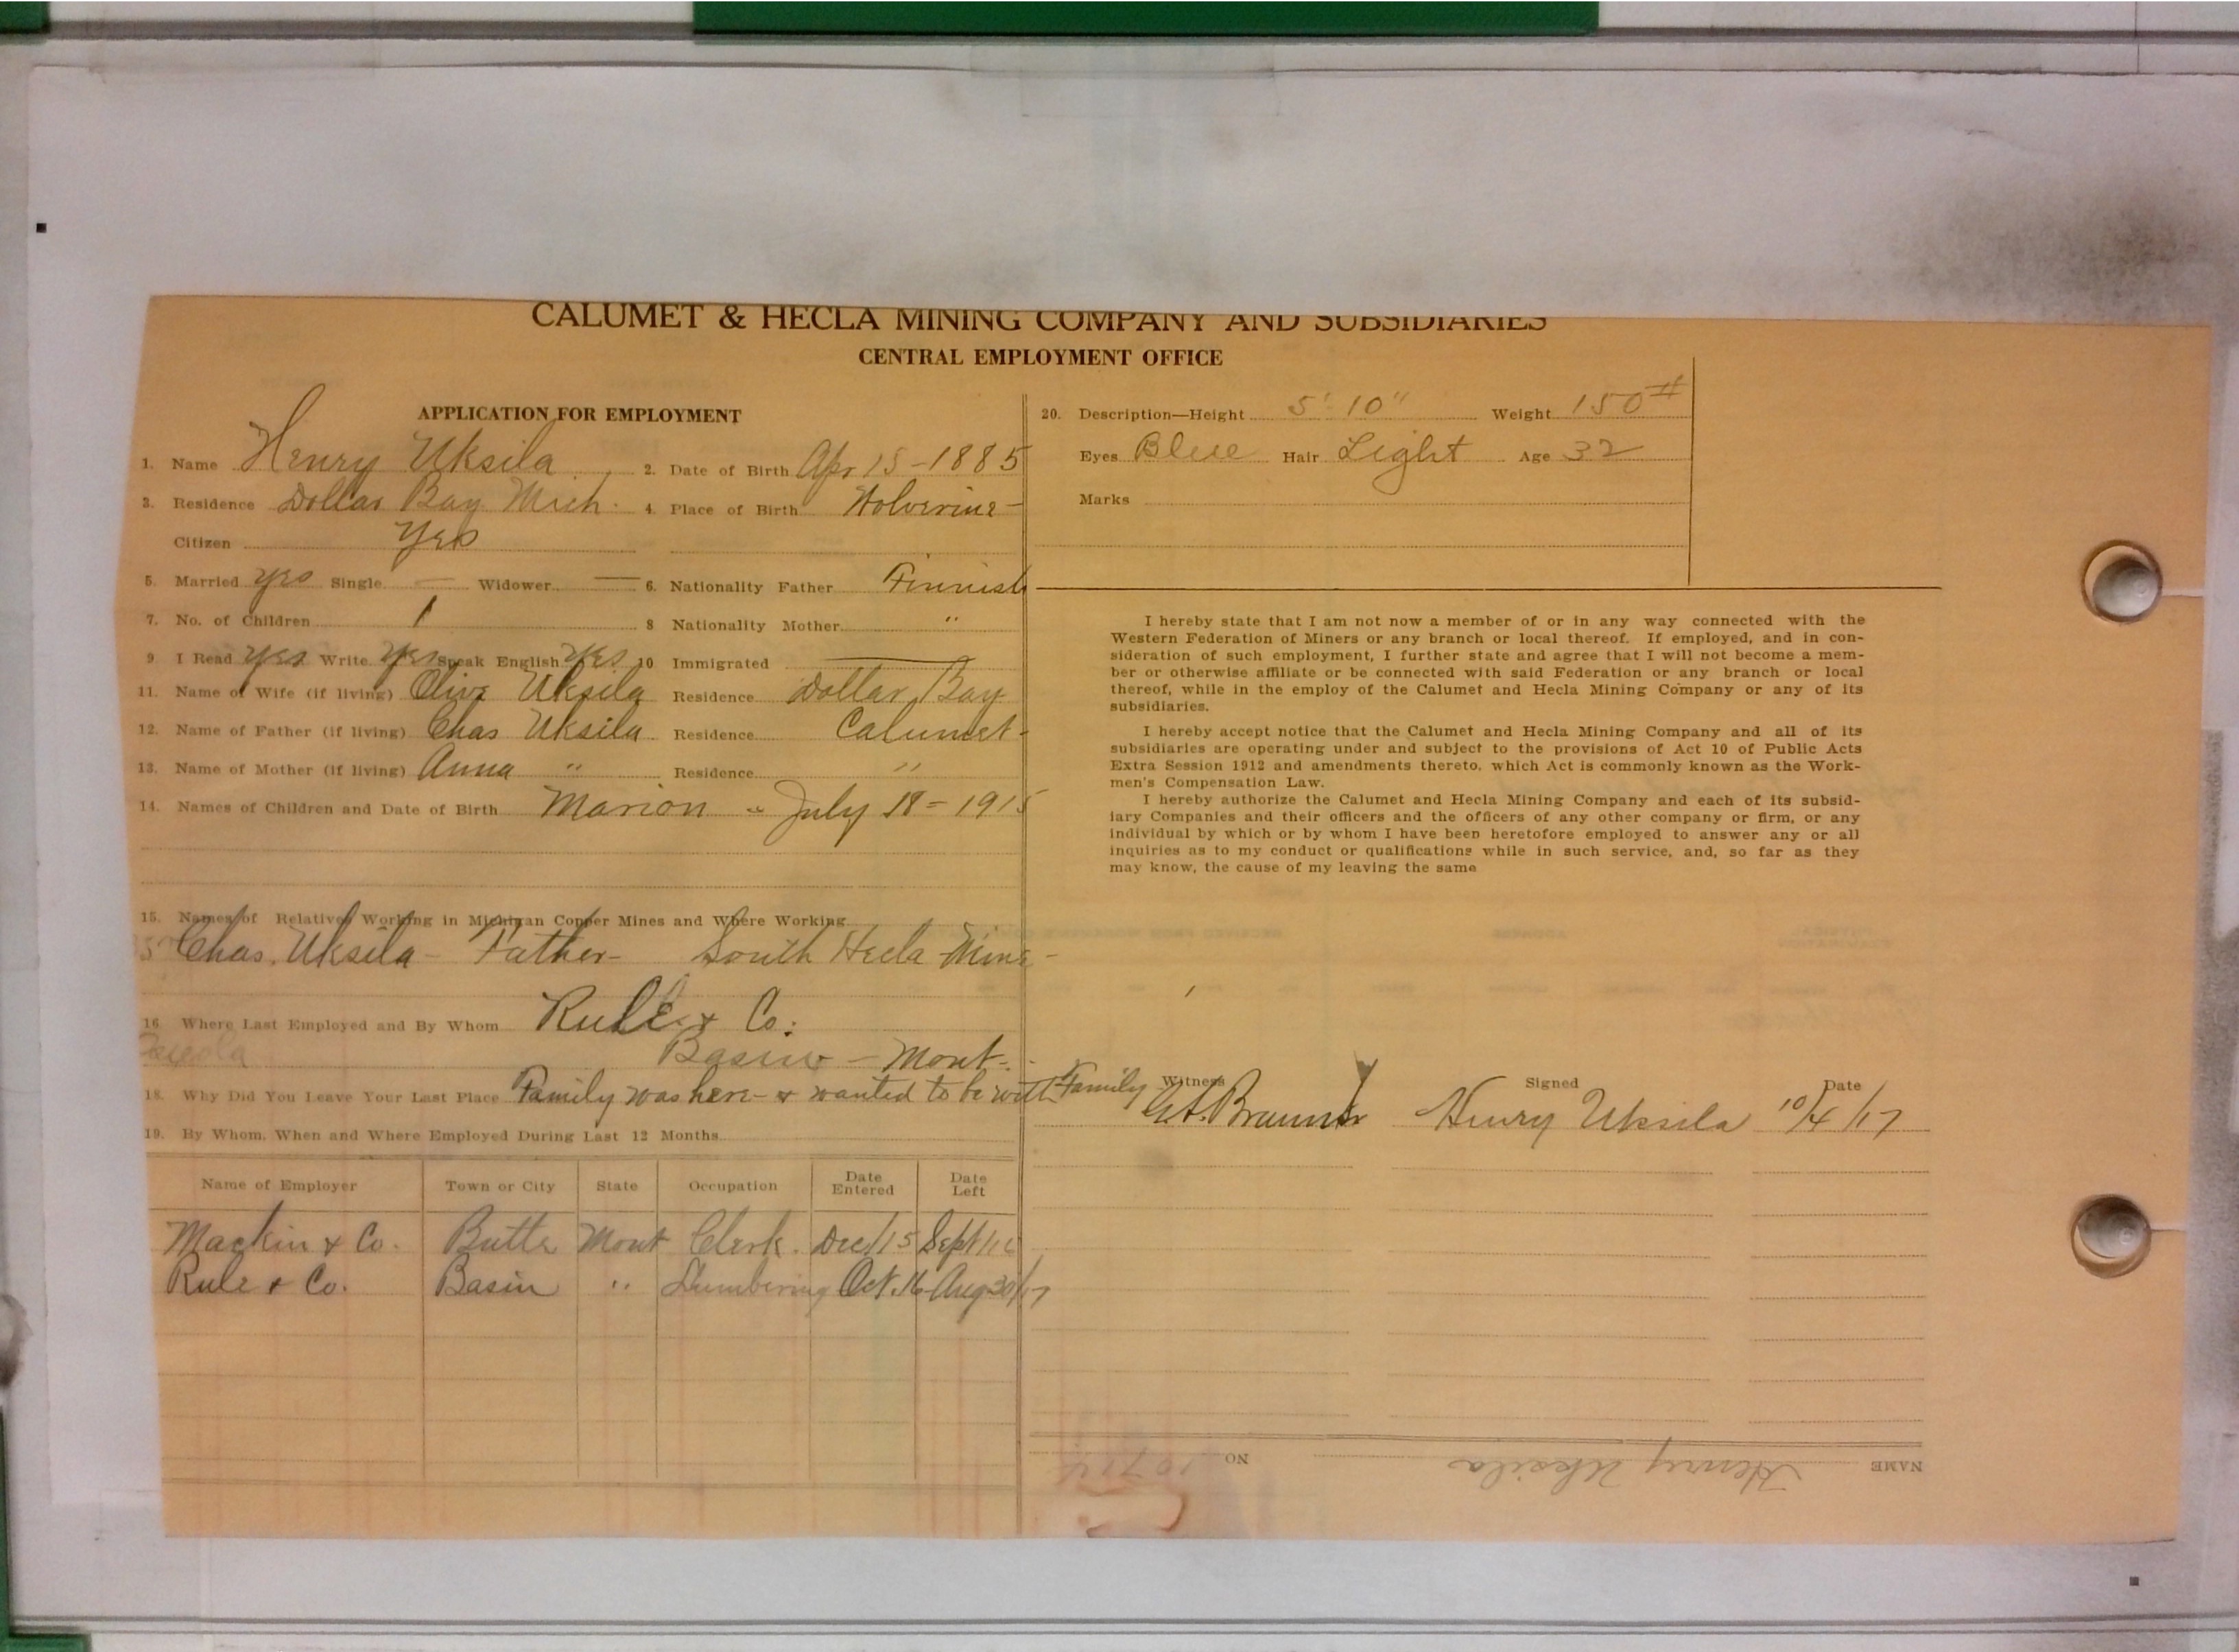 CALUMET & HECLA MINING COMPANY AND SUBSIDIARIES
CENTRAL EMPLOYMENT OFFICE
APPLICATION FOR EMPLOYMENT
1. Name Henry Uksila 2. Date of Birth Apr 15-1885
3. Residence Dollar Bay Mich. 4. Place of Birth Wolverine-
Citizen Yes
5. Married yes Single — Widower — 6. Nationality Father Finnish
7. No. of Children 1 8 Nationality Mother "
9. I Read yes Write yes Speak English yes 10 Immigrated —
11. Name of Wife (if living) Olive Uksila Residence Dollar Bay
12. Name of Father (if living) Chas Uksila Residence Calumet-
13. Name of Mother (if living) Anna " Residence "
14. Names of Children and Date of Birth Marion " July 18-1915
15. Names of Relatives Working in Michigan Copper Mines and Where Working
Chas. Uksila- Father- South Hecla Mine-
16. Where Last Employed and By Whom Rule & Co.
Basin - Mont-
18. Why Did You Leave Your Last Place Family was here- & wanted to be with Family
19. By Whom, When and Where Employed During Last 12 Months
Name of Employer Town or City State Occupation Date Entered Date Left
Mackin & Co. Butte Mont Clerk. Dec/15 Sept/16
Rule & Co. Basin " Lumbering Oct.16 Aug 30/17
20. Description—Height 5'-10" Weight 150#
Eyes Blue Hair Light Age 32
Marks
I hereby state that I am not now a member of or in any way connected with the
Western Federation of Miners or any branch or local thereof. If employed, and in con-
sideration of such employment, I further state and agree that I will not become a mem-
ber or otherwise affiliate or be connected with said Federation or any branch or local
thereof, while in the employ of the Calumet and Hecla Mining Company or any of its
subsidiaries.
I hereby accept notice that the Calumet and Hecla Mining Company and all of its
subsidiaries are operating under and subject to the provisions of Act 10 of Public Acts
Extra Session 1912 and amendments thereto, which Act is commonly known as the Work-
men's Compensation Law.
I hereby authorize the Calumet and Hecla Mining Company and each of its subsid-
iary Companies and their officers and the officers of any other company or firm, or any
individual by which or by whom I have been heretofore employed to answer any or all
inquiries as to my conduct or qualifications while in such service, and, so far as they
may know, the cause of my leaving the same
Witness Signed Date
Henry Uksila 10/4/17
NAME Henry Uksila NO